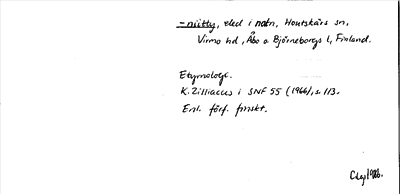 -niitty, eled i natn, Houtskärs sn,
Virmo hd, Åbo o Björneborgs l, Finland.
Etymologi.
K. Zilliacus i SNF 55 (1966), s. 113.
Enl. förf. finskt.
1986.